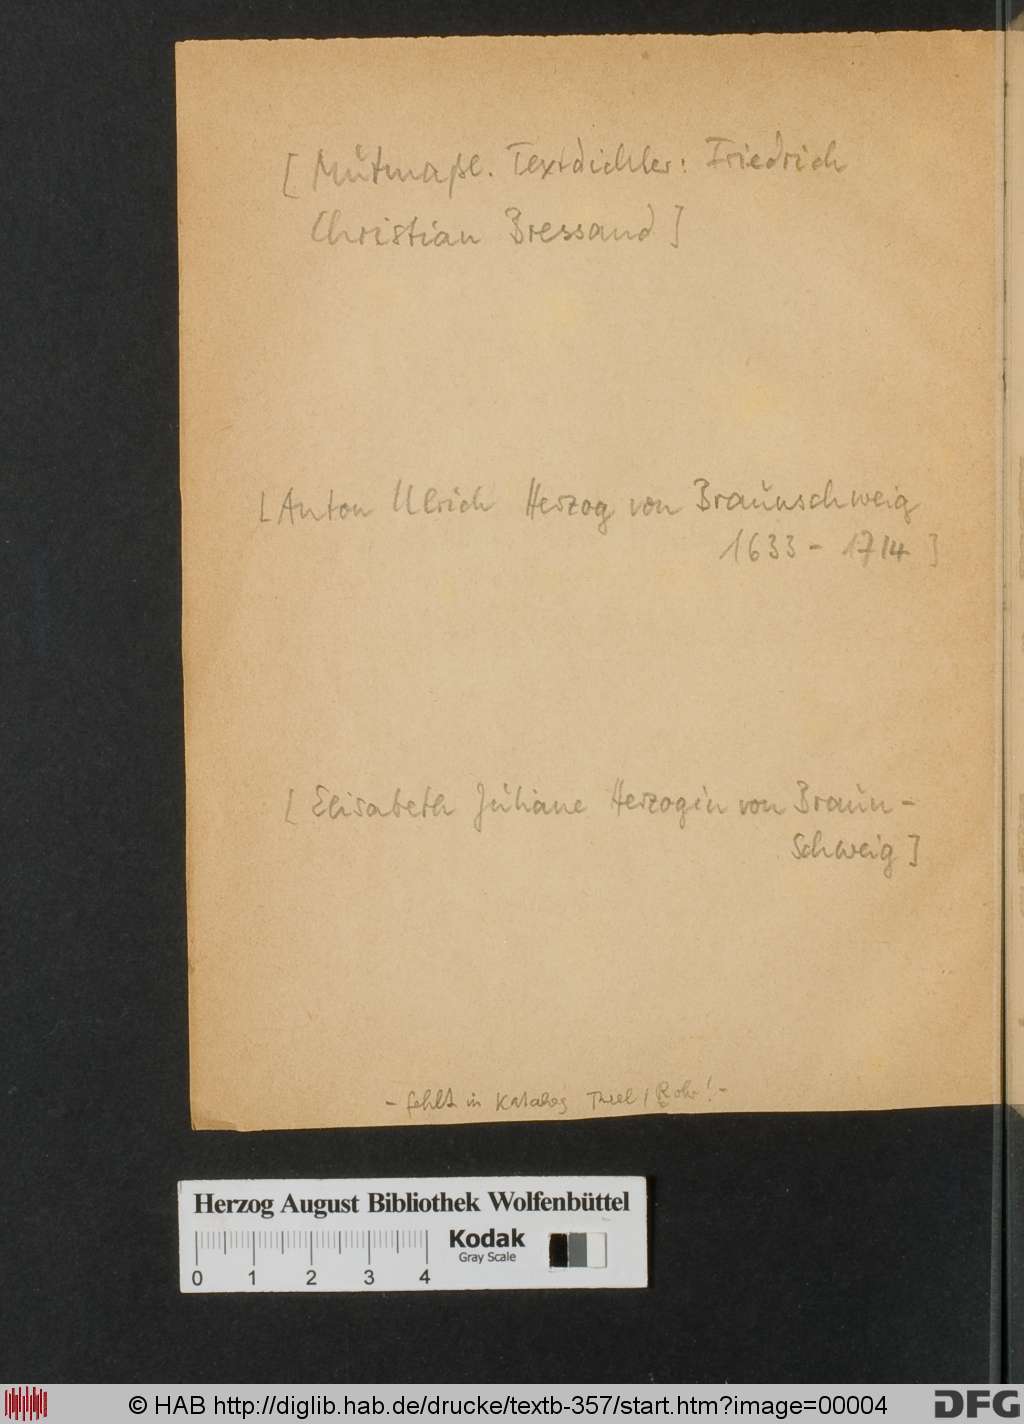 [Mutmaßl. Textdichter: Friedrich
Christian Bressand]
[Anton Ulrich Herzog von Braunschweig
1633 - 1714]
[Elisabeth Juliane Herzogin von Braun-
schweig]
- fehlt in Katalog Thiel / Rohr! -
Herzog August Bibliothek Wolfenbüttel
Kodak
Gray Scale
0 1 2 3 4
© HAB http://diglib.hab.de/drucke/textb-357/start.htm?image=00004
DFG